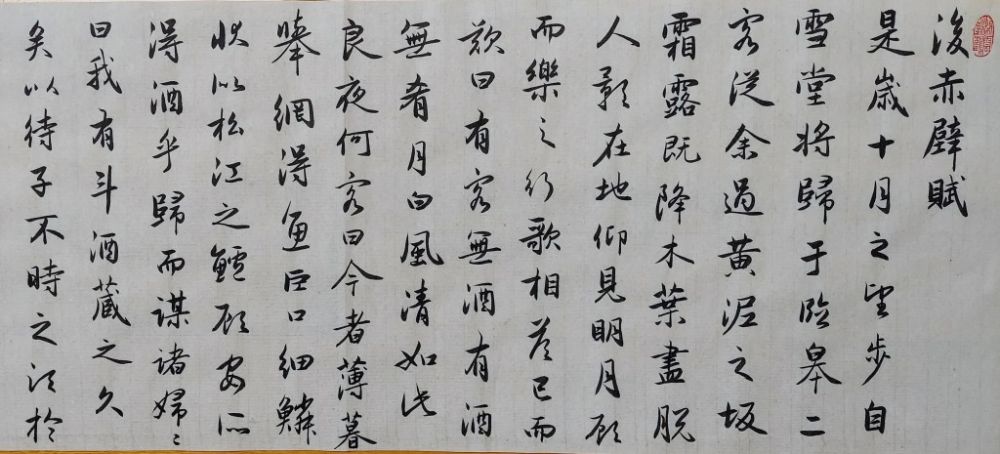 後赤壁賦
是歲十月之望步自
雪堂將歸于臨皋二
客從余過黃泥之坂
霜露既降木葉盡脫
人影在地仰見明月顧
而樂之行歌相答已而
歎曰有客無酒有酒
無肴月白風清如此
良夜何客曰今者薄暮
舉網得魚巨口細鱗
狀似松江之鱸顧安所
得酒乎歸而謀諸婦〻
曰我有斗酒藏之久
矣以待子不時之須於